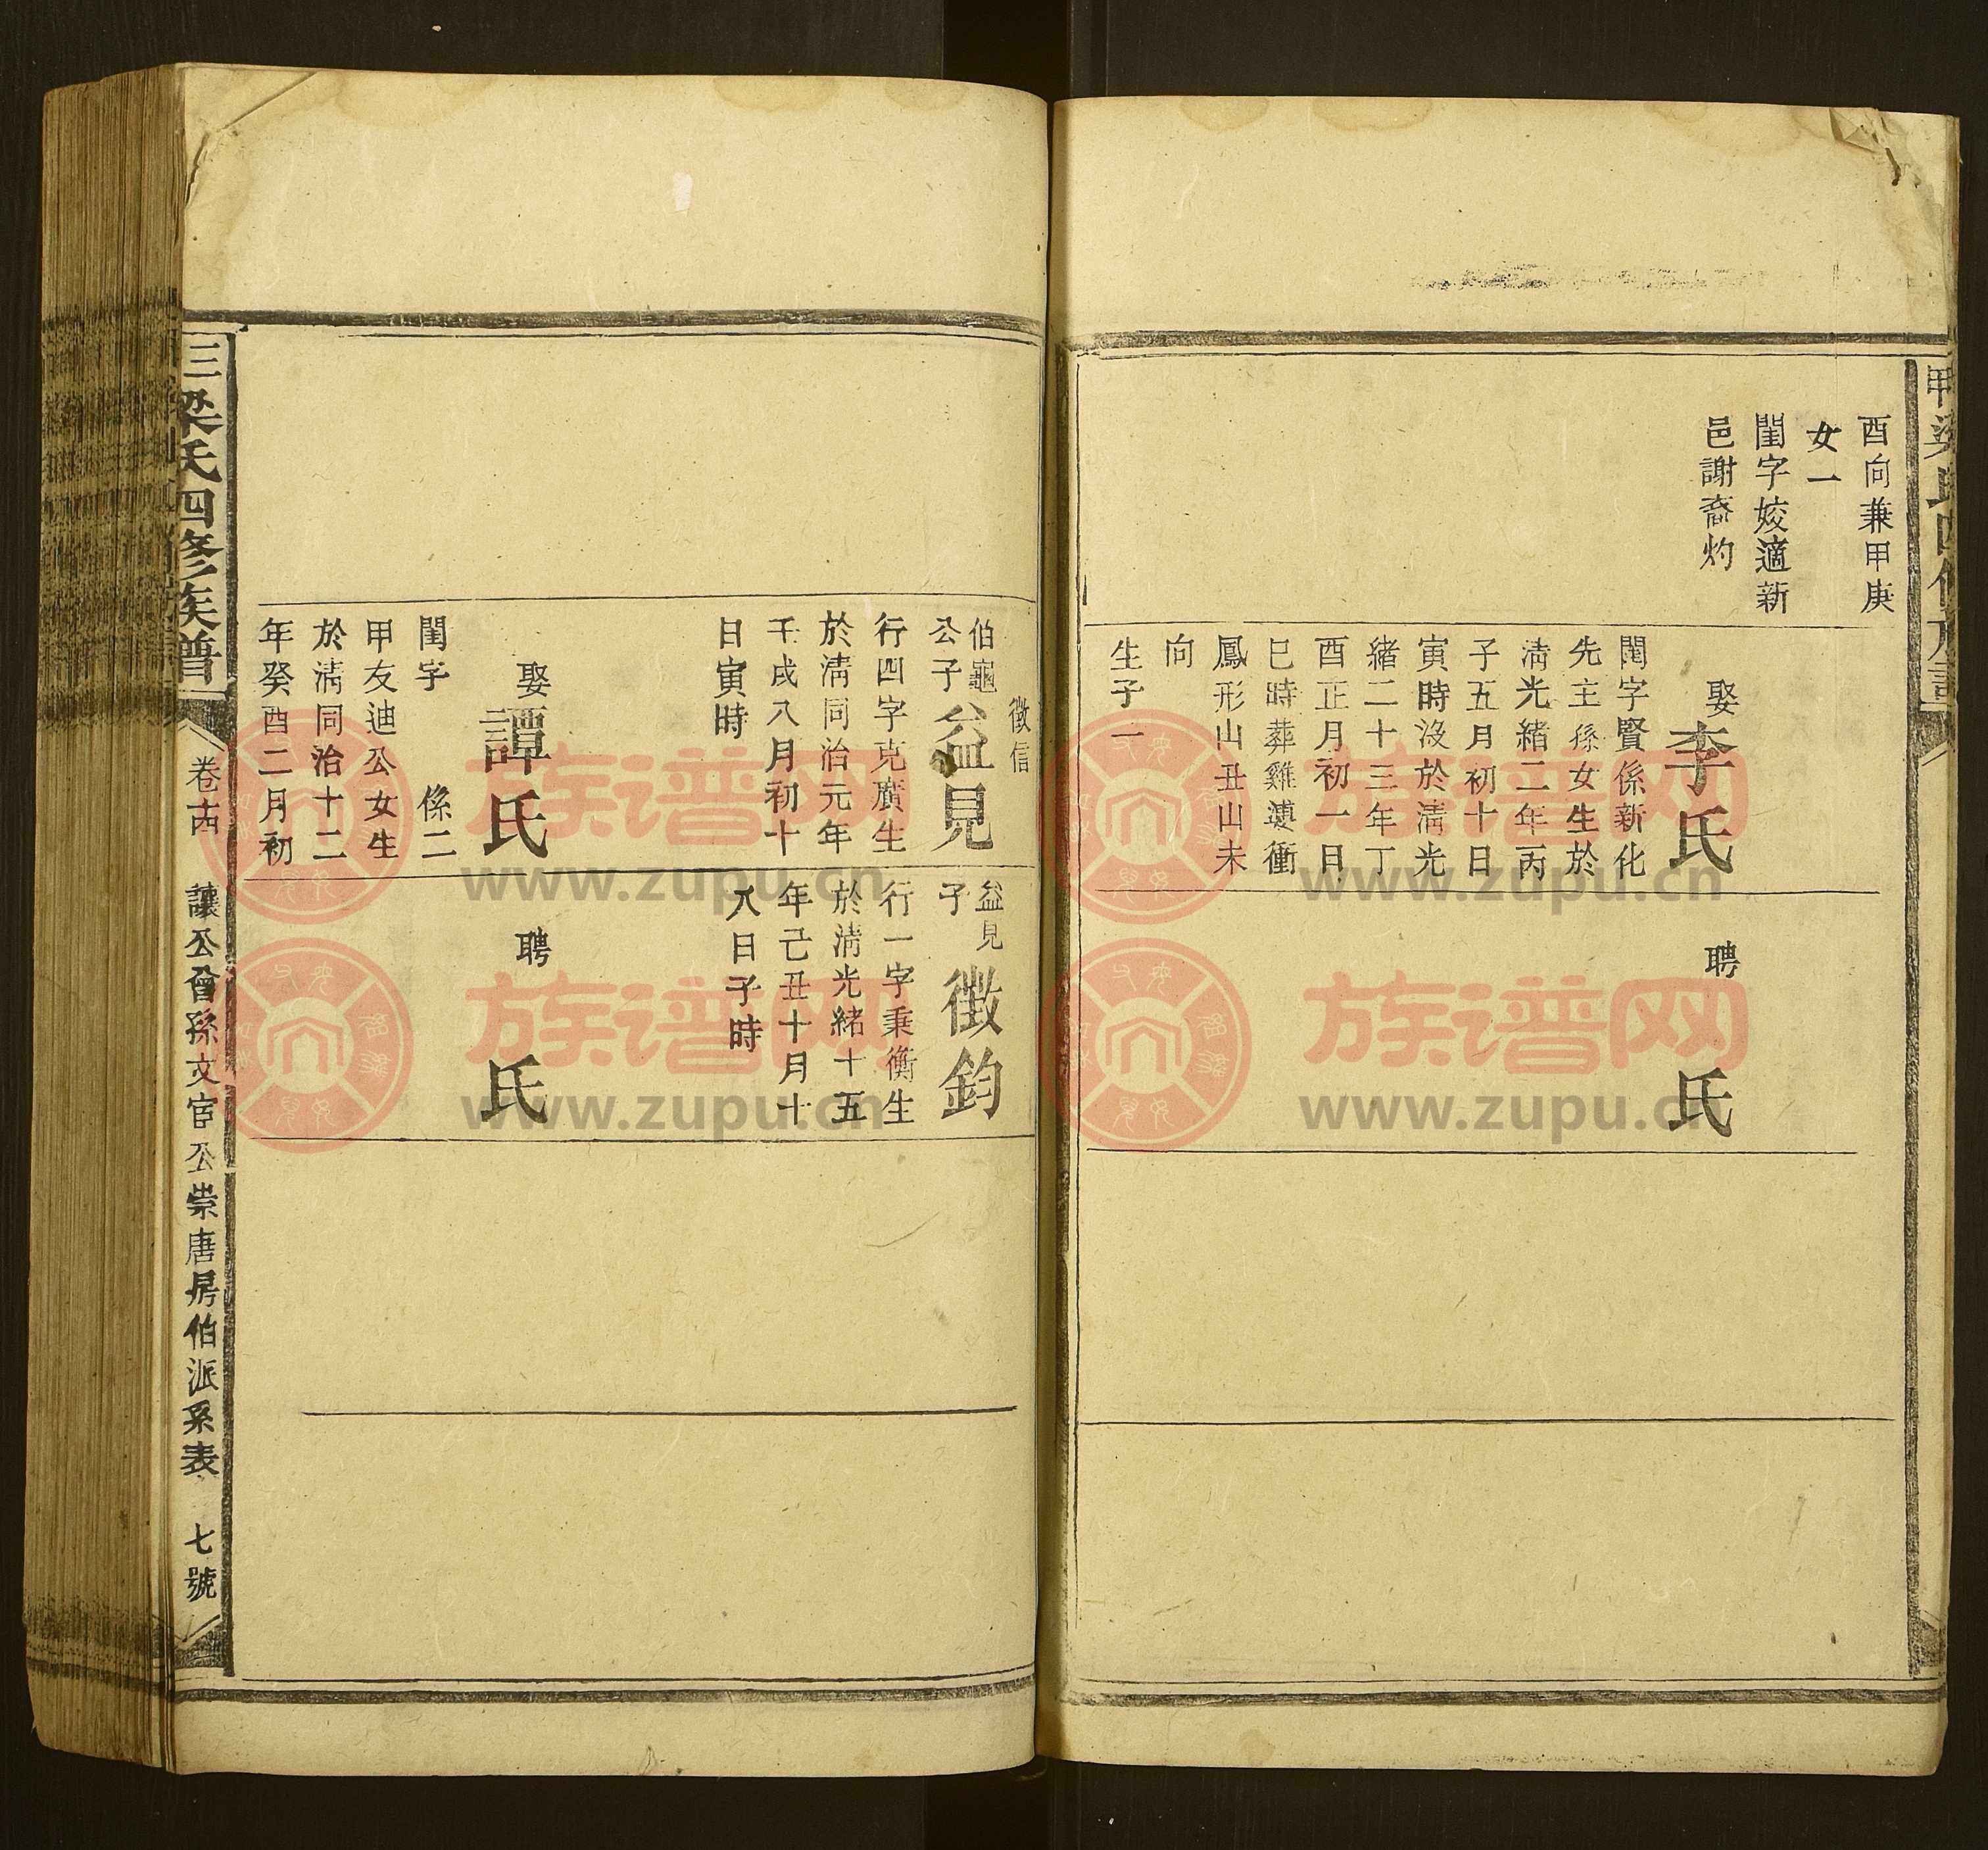 酉向兼甲庚
女一
閨字姣適新
邑謝裔灼
娶
李氏
閨字賢係新化
先主孫女生於
清光緒二年丙
子五月初十日
寅時沒於清光
緒二十三年丁
酉正月初一日
巳時葬雞婆衝
鳳形山丑山未
向
生子一
聘
氏
徵信
伯龜
公子
益見
行四字克廣生
於清同治元年
壬戌八月初十
日寅時
娶
譚氏
閨字 係二
甲友迪公女生
於清同治十二
年癸酉二月初
益見
子
徵鈞
行一字秉衡生
於清光緒十五
年己丑十月十
八日子時
聘
氏
梁氏四修族譜
卷十四
讓公曾孫文宦公崇唐房伯派系表
七號
族谱网
www.zupu.cn
族谱网
www.zupu.cn
族谱网
www.zupu.cn
族谱网
www.zupu.cn